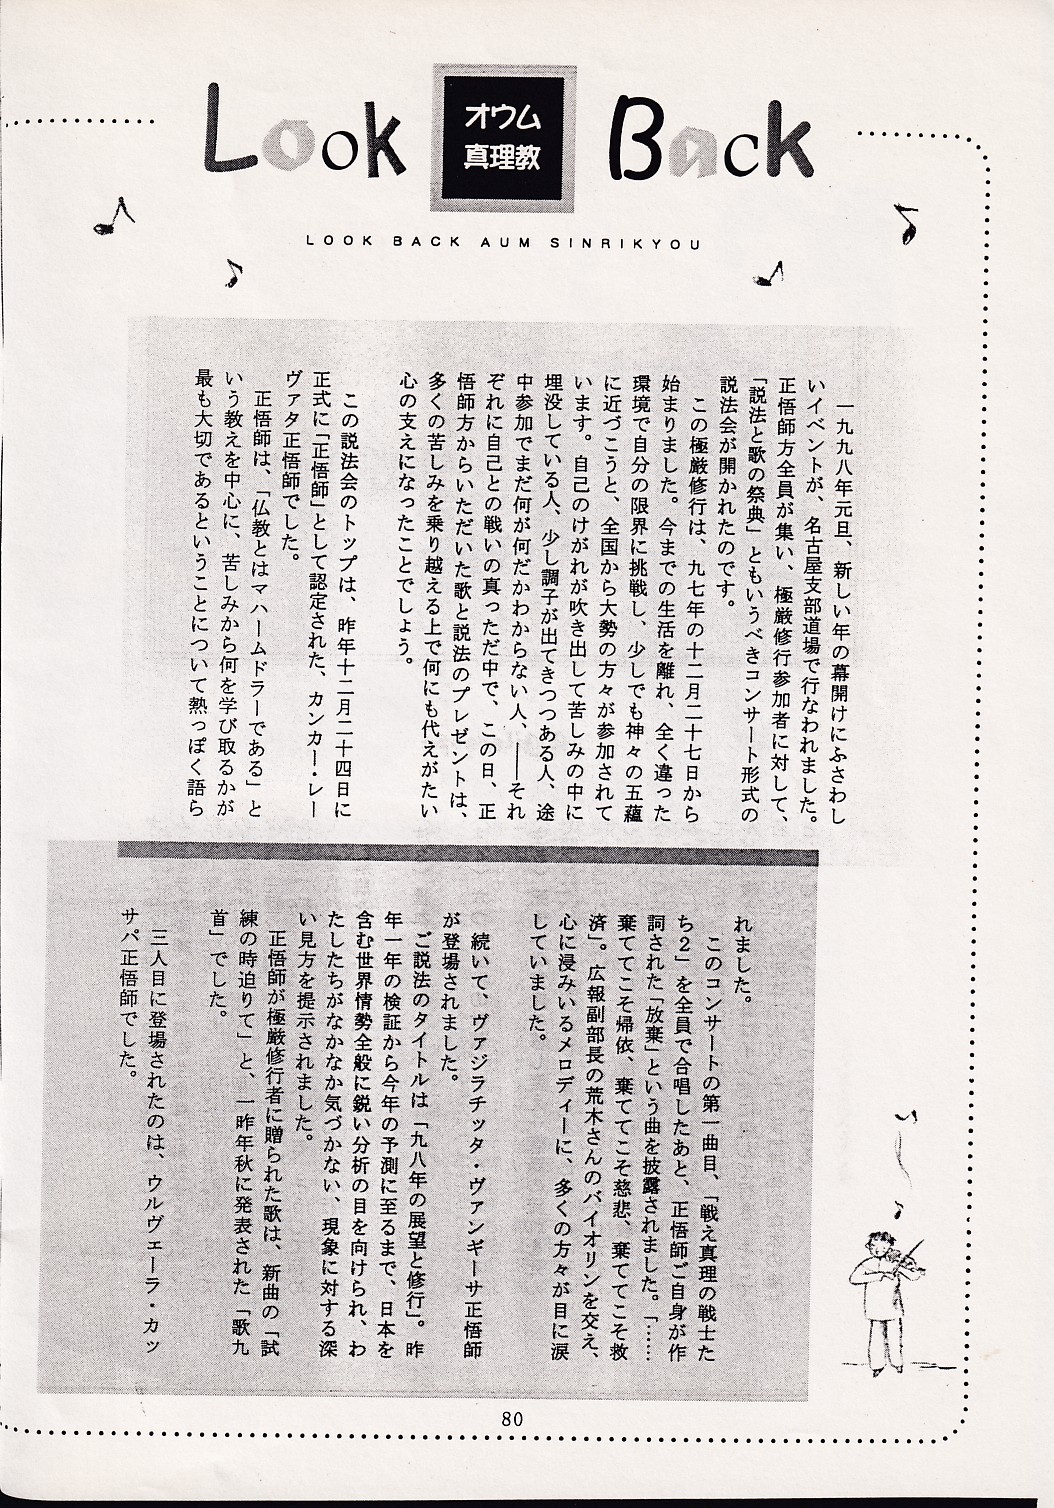 Look
オウム
真理教
Back
LOOK BACK AUM SINRIKYOU
一九九八年元旦、新しい年の幕開けにふさわし
いイベントが、名古屋支部道場で行なわれました。
正悟師方全員が集い、極厳修行参加者に対して、
「説法と歌の祭典」ともいうべきコンサート形式の
説法会が開かれたのです。
この極厳修行は、九七年の十二月二十七日から
始まりました。今までの生活を離れ、全く違った
環境で自分の限界に挑戦し、少しでも神々の五蘊
に近づこうと、全国から大勢の方々が参加されて
います。自己のけがれが吹き出して苦しみの中に
埋没している人、少し調子が出てきつつある人、途
中参加でまだ何が何だかわからない人、――それ
ぞれに自己との戦いの真っただ中で、この日、正
悟師方からいただいた歌と説法のプレゼントは、
多くの苦しみを乗り越える上で何にも代えがたい
心の支えになったことでしょう。
この説法会のトップは、昨年十二月二十四日に
正式に「正悟師」として認定された、カンカー・レー
ヴァタ正悟師でした。
正悟師は、「仏教とはマハームドラーである」と
いう教えを中心に、苦しみから何を学び取るかが
最も大切であるということについて熱っぽく語ら
れました。
このコンサートの第一曲目、「戦え真理の戦士た
ち2」を全員で合唱したあと、正悟師ご自身が作
詞された「放棄」という曲を披露されました。「……
棄ててこそ帰依、棄ててこそ慈悲、棄ててこそ救
済」。広報副部長の荒木さんのバイオリンを交え、
心に浸みいるメロディーに、多くの方々が目に涙
していました。
続いて、ヴァジラチッタ・ヴァンギーサ正悟師
が登場されました。
ご説法のタイトルは「九八年の展望と修行」。昨
年一年の検証から今年の予測に至るまで、日本を
含む世界情勢全般に鋭い分析の目を向けられ、わ
たしたちがなかなか気づかない、現象に対する深
い見方を提示されました。
正悟師が極厳修行者に贈られた歌は、新曲の「試
練の時迫りて」と、一昨年秋に発表された「歌九
首」でした。
三人目に登場されたのは、ウルヴェーラ・カッ
サパ正悟師でした。
80